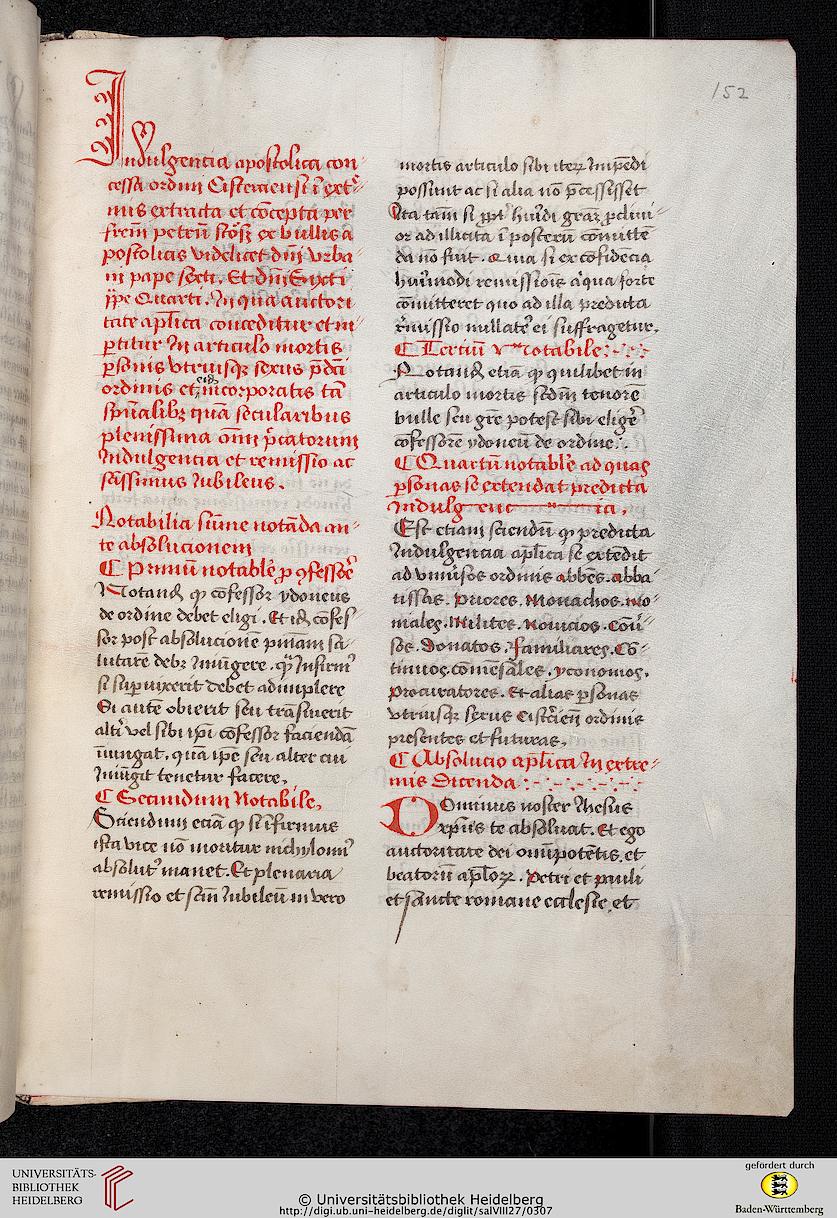 152
Indulgencia apostolica con
cessa ordini Cisterciensi ī ext̾
mis extracta et cōcepta per
frem̄ petrū ex bullis a
postolicis videlicet dn̄i Vrba
ni pape sexti. Et dn̄i Sixti
pp̄e Quarti. In qua auctori
tate apl̄ica conceditur et in
ꝑtitur In articulo mortis
ꝑsonis vtriusqꝫ sexus p̄dc̄i
ordinis et eidē incorporatis tā
spūalibꝫ quā secularibus
plenissima om̄i p̄catorum
Indulgencia et remissio ac
sc̄issimus Iubileus.
Notabilia sūme notāda an
te absolucionem
Primū notable ꝓ ꝯfessore
Notand̄ ꝙ cōfessor ydoneus
de ordine debet eligi. Et id̄ cōfes
sor post absolucionē pn̄iam sa
lutarē debꝫ Iniūgere. qͣ Infirmꝰ
si supuixerit debet adimplere
Si autē obierit seu trāsiuerit
altī vel sibi ip̄i cōfessor faciendā
iniūgat. quā ip̄e seu alter cui
Iniūgit tenetur facere.
Secundum Notabile.
Sciendum eciā ꝙ si īfirmus
ista vice nō moritur nichylominꝰ
absolutꝰ manet. Et plenaria
remissio et scm̄ Iubileū in vero
mortis articulo sibi iteꝝ Impēdi
possunt ac si alia nō p̄cessisset
Ita tam̄ si ꝓptꝰ huiꝰdi graꝫ ꝓcliui
or ad illicita ī posterū cōmittē
da nō fiat. Quia si ex cōfidēcia
huiꝰmodi remissiōis aͥqua forte
cōmitteret quo ad illa predicta
r̄missio nullatꝰ ei suffragetur.
Tertiū Notabile
Notand̄ etiā ꝙ quilibet in
articulo mortis scdm̄ tenorē
bulle seu gr̄e potest sibi eligēr
cōfessorē ydoneū de ordine.
Quartū notable ad quas
ꝑsonas se extendat predicta
Indulgenc ia.
Est etiam sciendū ꝙ predicta
Indulgencia apl̄ica se extēdit
ad vniuſos ordinis abbēs. abba
tissas. Priores. Monachos. mo
niales. Milites. Nouicios. Conū
sos. Donatos. Familiares. Cō
tinuos. cōmēsales. yconomos.
Procuratores. Et alias ꝑsonas
vtriusqꝫ sexus Cistrien̄ ordinis
presentes et futuras.
Absolucio apl̄ica In extre
mis Dicenda
Dominus noster Ihesus
xpūs te absoluat. Et ego
auctoritate dei om̄ipotētis. et
beatorū apl̄oꝝ. Petri et pauli
et sancte romane ecclesie. et
UNIVERSITÄTS-
BIBLIOTHEK
HEIDELBERG
© Universitätsbibliothek Heidelberg
http://digi.ub.uni-heidelberg.de/diglit/salVIII27/0307
gefördert durch
Baden-Württemberg